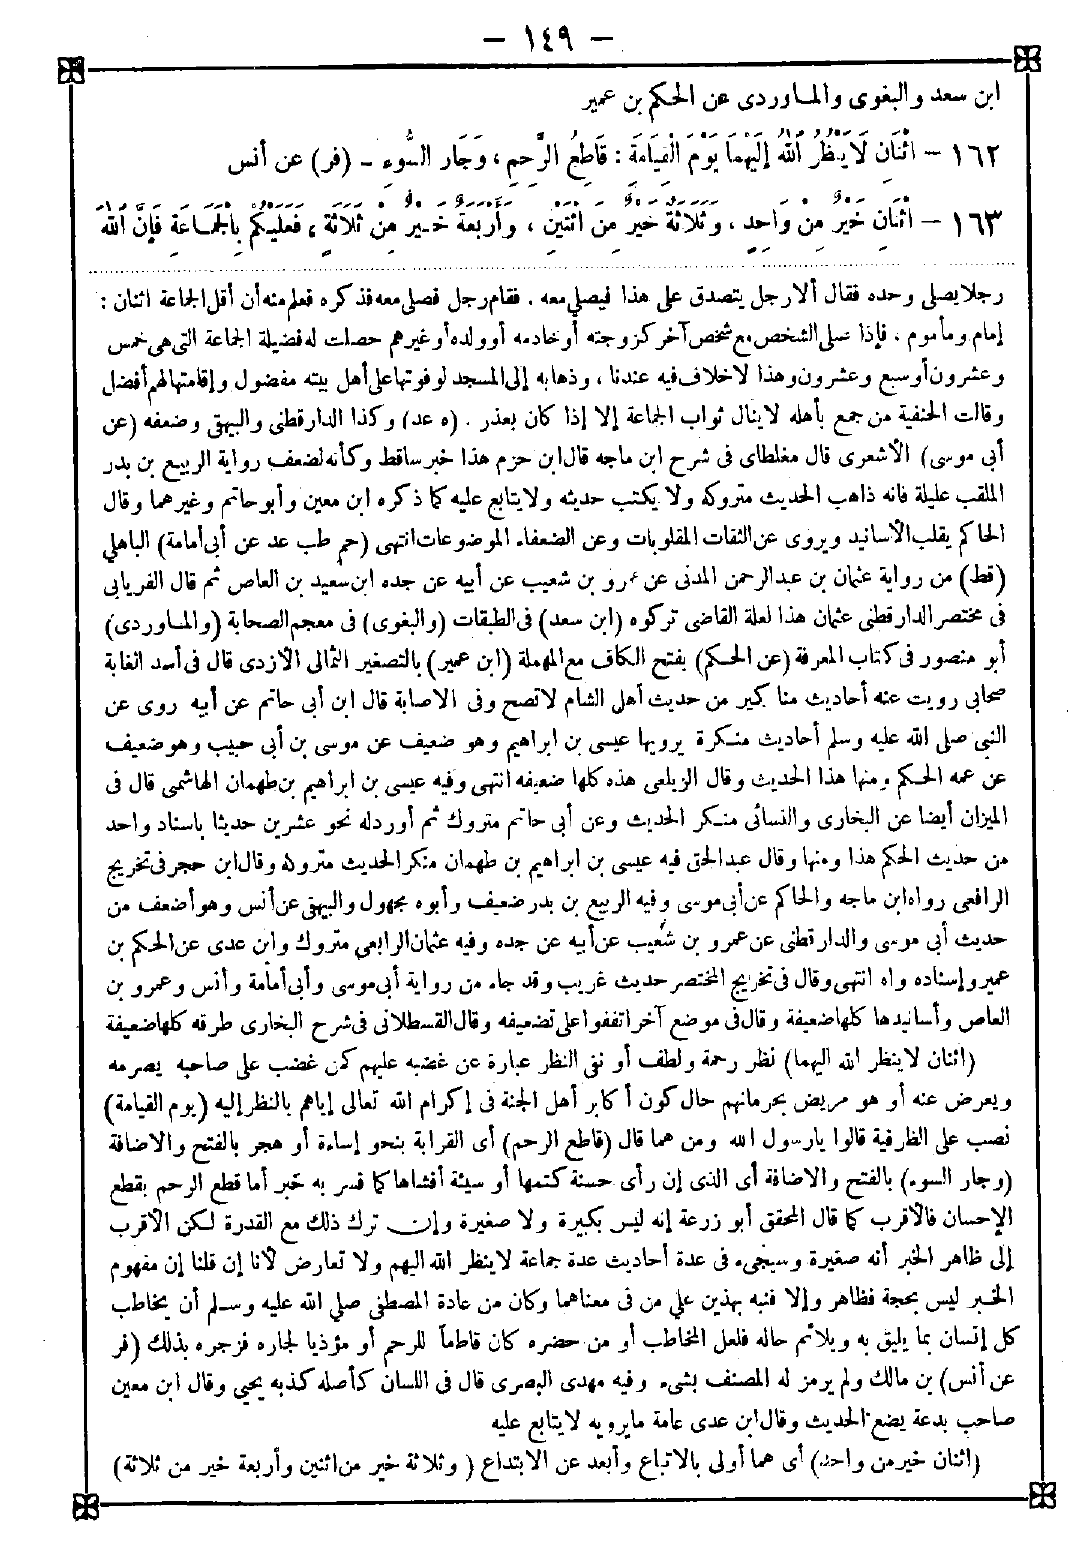 — ١٤٩ —
ابن سعد والبغوى والمـاوردى عن الحكم بن عمير
١٦٢ — اثْنَانِ لَا يَنْظُرُ اللهُ إِلَيْهِمَا يَوْمَ الْقِيَامَةِ : قَاطِعُ الرَّحِمِ ، وَجَارُ السُّوءِ – (فر) عن أنس
١٦٣ — اثْنَانِ خَيْرٌ مِنْ وَاحِدٍ ، وَثَلَاثَةٌ خَيْرٌ مِنَ اثْنَيْنِ ، وَأَرْبَعَةٌ خَيْرٌ مِنْ ثَلَاثَةٍ ، فَعَلَيْكُمْ بِالْجَمَاعَةِ فَإِنَّ اللهَ
رجلا يصلى وحده فقال ألا رجل يتصدق على هذا فيصلى معه . فقام رجل فصلى معه فذكره فعلم منه أن أقل الجماعة اثنان :
إمام ومأموم ، فإذا صلى الشخص مع شخص آخر كزوجته أو خادمه أو ولده أو غيرهم حصلت له فضيلة الجماعة التى هى خمس
وعشرون أو سبع وعشرون وهذا لا خلاف فيه عندنا ، وذهابه إلى المسجد لو فوتها على أهل بيته مفضول وإقامتها لهم أفضل
وقالت الحنفية من جمع بأهله لا ينال ثواب الجماعة إلا إذا كان بعذر . (ه عد) وكذا الدارقطنى والبيهقى وضعفه (عن
أبى موسى) الأشعرى قال مغلطاى فى شرح ابن ماجه قال ابن حزم هذا خبر ساقط وكأنه لضعف رواية الربيع بن بدر
الملقب عليلة فانه ذاهب الحديث متروكه ولا يكتب حديثه ولا يتابع عليه كما ذكره ابن معين وأبو حاتم وغيرهما وقال
الحاكم يقلب الأسانيد ويروى عن الثقات المقلوبات وعن الضعفاء الموضوعات انتهى (حم طب عد عن أبى أمامة) الباهلي
(قط) من رواية عثمان بن عبد الرحمن المدنى عن عمرو بن شعيب عن أبيه عن جده ابن سعيد بن العاص ثم قال الفريابى
فى مختصر الدارقطنى عثمان هذا لعله القاضى تركوه (ابن سعد) فى الطبقات (والبغوى) فى معجم الصحابة (والمـاوردى)
أبو منصور فى كتاب المعرفة (عن الحكم) بفتح الكاف مع المهملة (ابن عمير) بالتصغير الثمالى الأزدى قال فى أسد الغابة
صحابى رويت عنه أحاديث مناكير من حديث أهل الشام لا تصح وفى الاصابة قال ابن أبى حاتم عن أبيه روى عن
النبى صلى الله عليه وسلم أحاديث منكرة يرويها عيسى بن ابراهيم وهو ضعيف عن موسى بن أبى حبيب وهو ضعيف
عن عمه الحكم ومنها هذا الحديث وقال الزيلعى هذه كلها ضعيفه انتهى وفيه عيسى بن ابراهيم بن طهمان الهاشمى قال فى
الميزان أيضا عن البخارى والنسائى منـكر الحديث وعن أبى حاتم متروك ثم أورد له نحو عشرين حديثا باسناد واحد
من حديث الحكم هذا ومنها وقال عبد الحق فيه عيسى بن ابراهيم بن طهمان منكر الحديث متروك وقال ابن حجر فى تخريج
الرافعى رواه ابن ماجه والحاكم عن أبى موسى وفيه الربيع بن بدر ضعيف وأبوه مجهول والبيهقى عن أنس وهو أضعف من
حديث أبى موسى والدارقطنى عن عمرو بن شعيب عن أبيه عن جده وفيه عثمان الرابعي متروك وابن عدى عن الحكم بن
عمير وإسناده واه انتهى وقال فى تخريج المختصر حديث غريب وقد جاء من رواية أبى موسى وأبى أمامة وأنس وعمرو بن
العاص وأسانيدها كلها ضعيفة وقال فى موضع آخر اتفقوا على تضعيفه وقال القسطلانى فى شرح البخارى طرقه كلها ضعيفة
(اثنان لا ينظر الله اليهما) نظر رحمة ولطف أو نفى النظر عبارة عن غضبه عليهم كمن غضب على صاحبه يصرمه
ويعرض عنه أو هو مريض بحرمانهم حال كون أكابر أهل الجنة فى إكرام الله تعالى إياهم بالنظر إليه (يوم القيامة)
نصب على الظرفية قالوا يا رسول الله ومن هما قال (قاطع الرحم) أى القرابة بنحو إساءة أو هجر بالفتح والاضافة
(وجار السوء) بالفتح والاضافة أى الذى إن رأى حسنة كتمها أو سيئة أفشاها كما فسر به خبر أما قطع الرحم بقطع
الإحسان فالأقرب كما قال المحقق أبو زرعة إنه ليس بكبيرة ولا صغيرة وإن ترك ذلك مع القدرة لـكن الأقرب
إلى ظاهر الخبر أنه صغيرة وسيجىء فى عدة أحاديث عدة جماعة لا ينظر الله اليهم ولا تعارض لأنا إن قلنا إن مفهوم
الخبر ليس بحجة فظاهر وإلا فنبه بهذين علي من فى معناهما وكان من عادة المصطفى صلي الله عليه وسلم أن يخاطب
كل إنسان بما يليق به ويلائم حاله فلعل المخاطب أو من حضره كان قاطعاً للرحم أو مؤذيا لجاره فزجره بذلك (فر
عن أنس) بن مالك ولم يرمز له المصنف بشىء وفيه مهدى البصرى قال فى اللسان كأصله كذبه يحيي وقال ابن معين
صاحب بدعة يضع الحديث وقال ابن عدى عامة ما يرويه لا يتابع عليه
(اثنان خير من واحد) أى هما أولى بالاتباع وأبعد عن الابتداع (وثلاثة خير من اثنين وأربعة خير من ثلاثة)